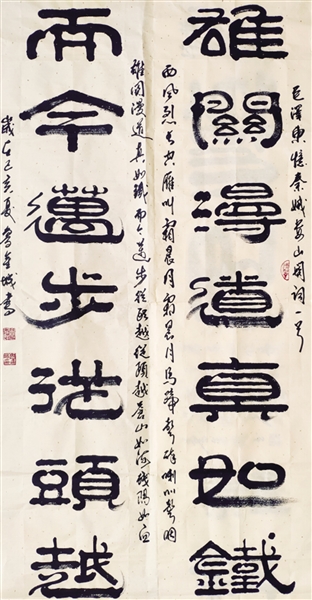 毛澤東憶秦娥婁山関詞一首
雄關漫道真如鐵
西風烈長空雁叫霜晨月霜晨月馬蹄聲碎喇叭聲咽
雄関漫道真如鐵而今邁步從頭越從頭越蒼山如海殘陽如血
而今邁步從頭越
歲在己亥夏金城書